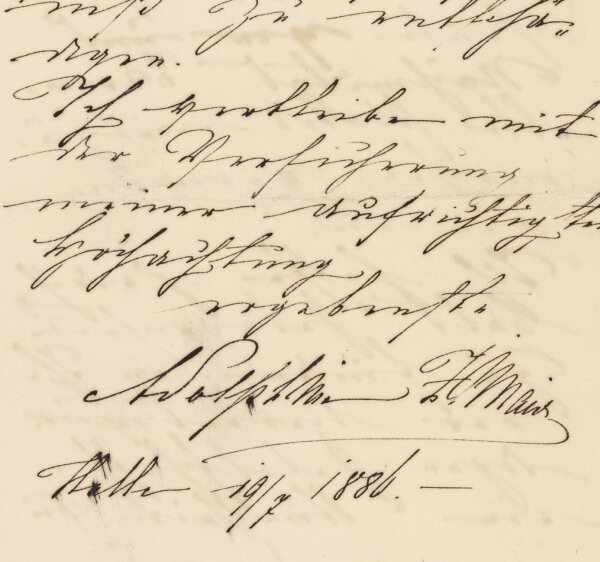 niß zu entschä„
digen.
Ich verbleibe mit
der Versicherung
meiner aufrichtigsten
Hochachtung
ergebenste
Adolphine H. Maier
Halle 19/7 1886. —